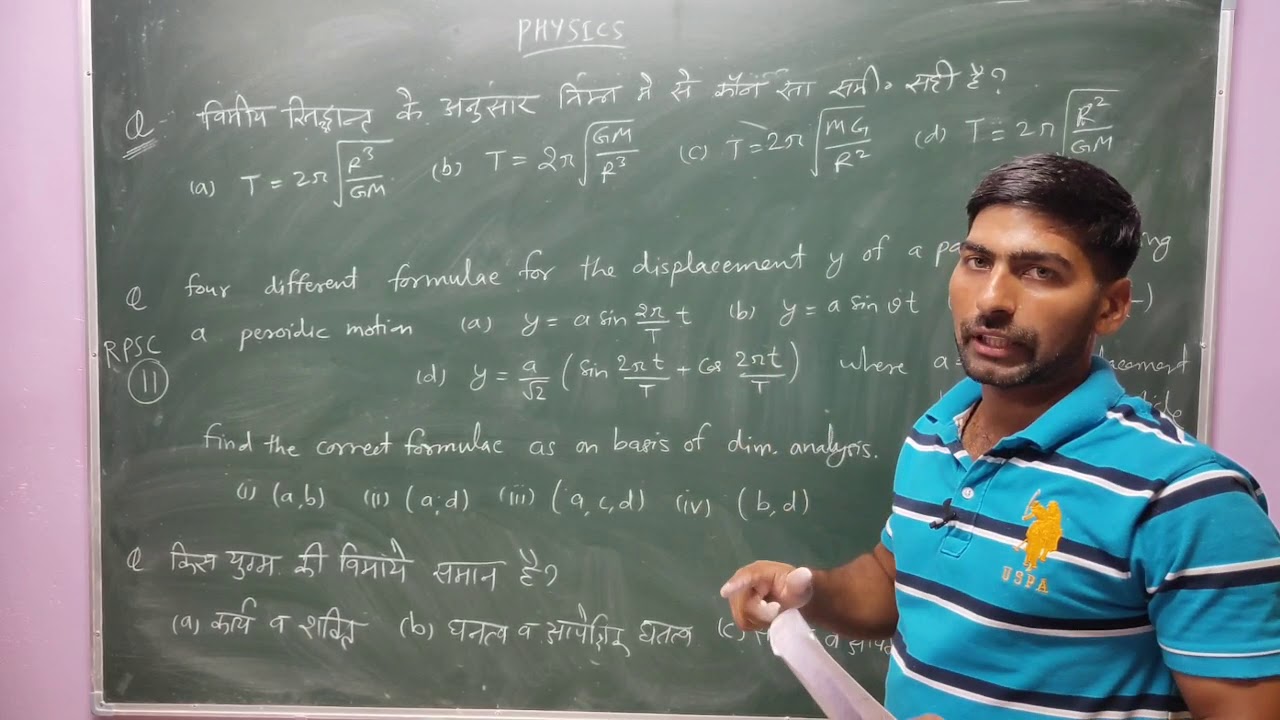 PHYSICS
Q विमीय सिद्धान्त के अनुसार निम्न में से कौन सा समी॰ सही है?
(a) T = 2π√(R³/GM) (b) T = 2π√(GM/R³) (c) T = 2π√(MG/R²) (d) T = 2π√(R²/GM)
Q four different formulae for the displacement y of a
RPSC 11 a peroidic motion (a) y = a sin 2π/T t (b) y = a sin vt
(d) y = a/√2 (sin 2πt/T + cos 2πt/T) where a =
find the correct formulae as on basis of dim. analysis.
(i) (a,b) (ii) (a,d) (iii) (a,c,d) (iv) (b,d)
Q किस युग्म की विमाये समान है?
(a) कार्य व शक्ति (b) घनत्व व आपेक्षिक घनत्व (c)
USPA